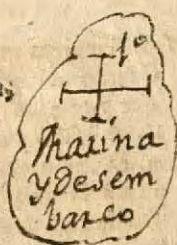 1º
Marina
y desem
barco